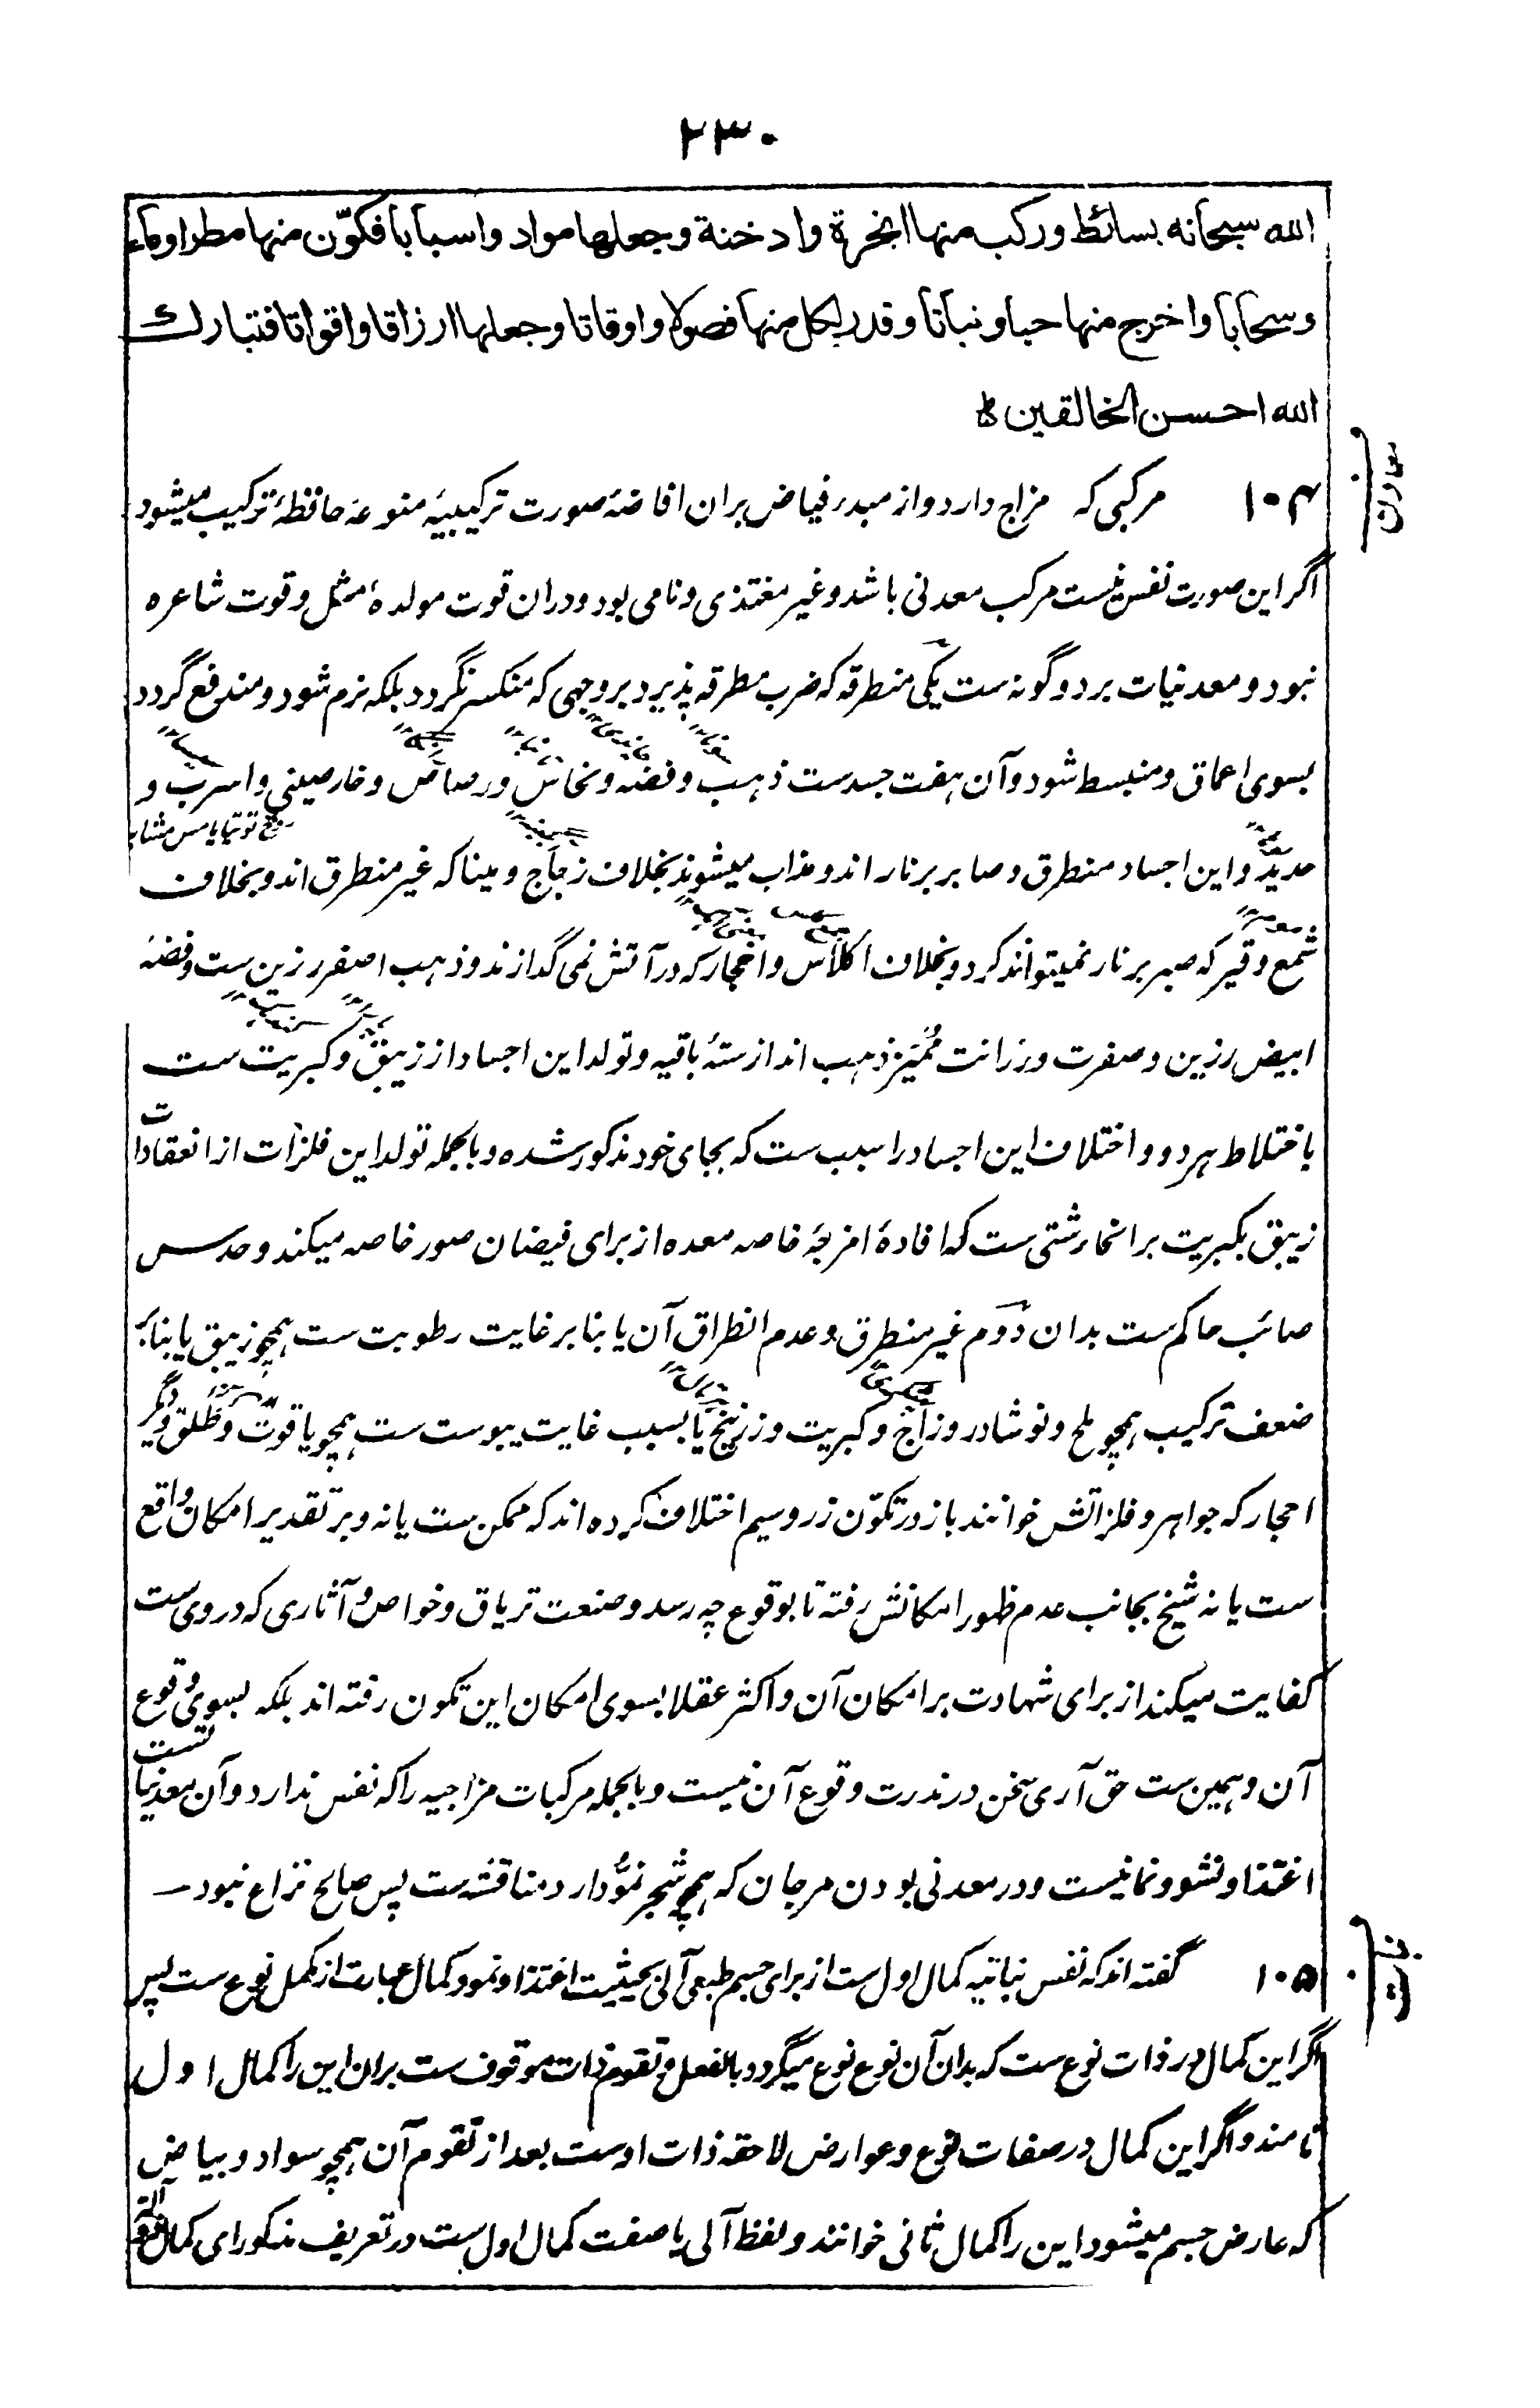 ۲۳۰
الله سبحانه بسائط وركب منها ابخرة وادخنة وجعلها مواد واسبابا فكوّن منها مطرا وماء
وسحابا واخرج منها حبا ونباتا وقدر لكل منها فصولا واوقاتا وجعلها ارزاقا واقواتا فتبارك
الله احسن الخالقين
معادن
۱۰۴ مرکبی که مزاج دارد و از مبدء فیاض بران افاضهٔ صورت ترکیبیهٔ منوعه حافظهٔ ترکیب میشود
اگر این صورت نفس نیست مرکب معدنی باشد و غیر مغتذی و نامی بود و دران قوت مولدهٔ مثل و قوت شاعره
نبود و معدنیات بر دو گونه ست یکی منطرقه که ضرب مطرقه پذیرد بر وجهی که منکسر نگردد بلکه نرم شود و مندفع گردد
بسوی اعماق و منبسط شود و آن هفت جسدست ذهب و فضه و نحاس و رصاص و خارصینی و اسرب و
حدید و این اجساد منطرق و صابر بر نار اند و مذاب میشوند بخلاف زجاج و مینا که غیر منطرق اند و بخلاف
شمع و قیر که صبر بر نار نمیتواند کرد و بخلاف اکلاس و احجار که در آتش نمی گدازند و ذهب اصفر رزین ست و فضه
ابیض رزین و صفرت و رزانت مُمَیّز ذهب اند از ستهٔ باقیه و تولد این اجساد از زیبق و کبریت ست
باختلاط هر دو و اختلاف این اجساد را سبب ست که بجای خود مذکور شده و بالجمله تولد این فلزات از انعقادات
زیبق بکبریت بر انحاء شتی ست که افادهٔ امزجهٔ خاصه معده از برای فیضان صور خاصه میکند و حدس
صائب حاکم ست بدان دوم غیر منطرق و عدم انطراق آن یا بنا بر غایت رطوبت ست همچو زیبق یا بنا بر
ضعف ترکیب همچو ملح و نوشادر و زاج و کبریت و زرنیخ یا بسبب غایت یبوست ست همچو یاقوت و طلق و دیگر
احجار که جواهر و فلزاتش خوانند باز در تکوّن زر و سیم اختلاف کرده اند که ممکن ست یا نه و بر تقدیر امکان واقع
ست یا نه شیخ بجانب عدم ظهور امکانش رفته تا بوقوع چه رسد و صنعت تریاق و خواص و آثاری که در وی ست
کفایت میکند از برای شهادت بر امکان آن و اکثر عقلا بسوی امکان این تکون رفته اند بلکه بسوی وقوع
آن و همین ست حق آری سخن در ندرت وقوع آن نیست و بالجمله مرکبات مزاجیه را که نفس ندارد و آن معدنیات ست
اغتذا و نشو و نما نیست و در معدنی بودن مرجان که همچو شجر نمُوّ دارد مناقشه ست پس صالح نزاع نبود
نبات
۱۰۵ گفته اند که نفس نباتیه کمال اول ست از برای جسم طبعی آلی بحیثیت اغتذا و نمو و کمال عبارت از مکمل نوع ست پس
اگر این کمال در ذات نوع ست که بدان آن نوع نوع میگردد بالفعل و تقوم ذات موقوف ست بران این را کمال اول
نامند و اگر این کمال در صفات نوع و عوارض لاحقه ذات اوست بعد از تقوم آن همچو سواد و بیاض
که عارض جسم میشود این را کمال ثانی خوانند و لفظ آلی یا صفت کمال اول ست در تعریف مذکور ای کمال